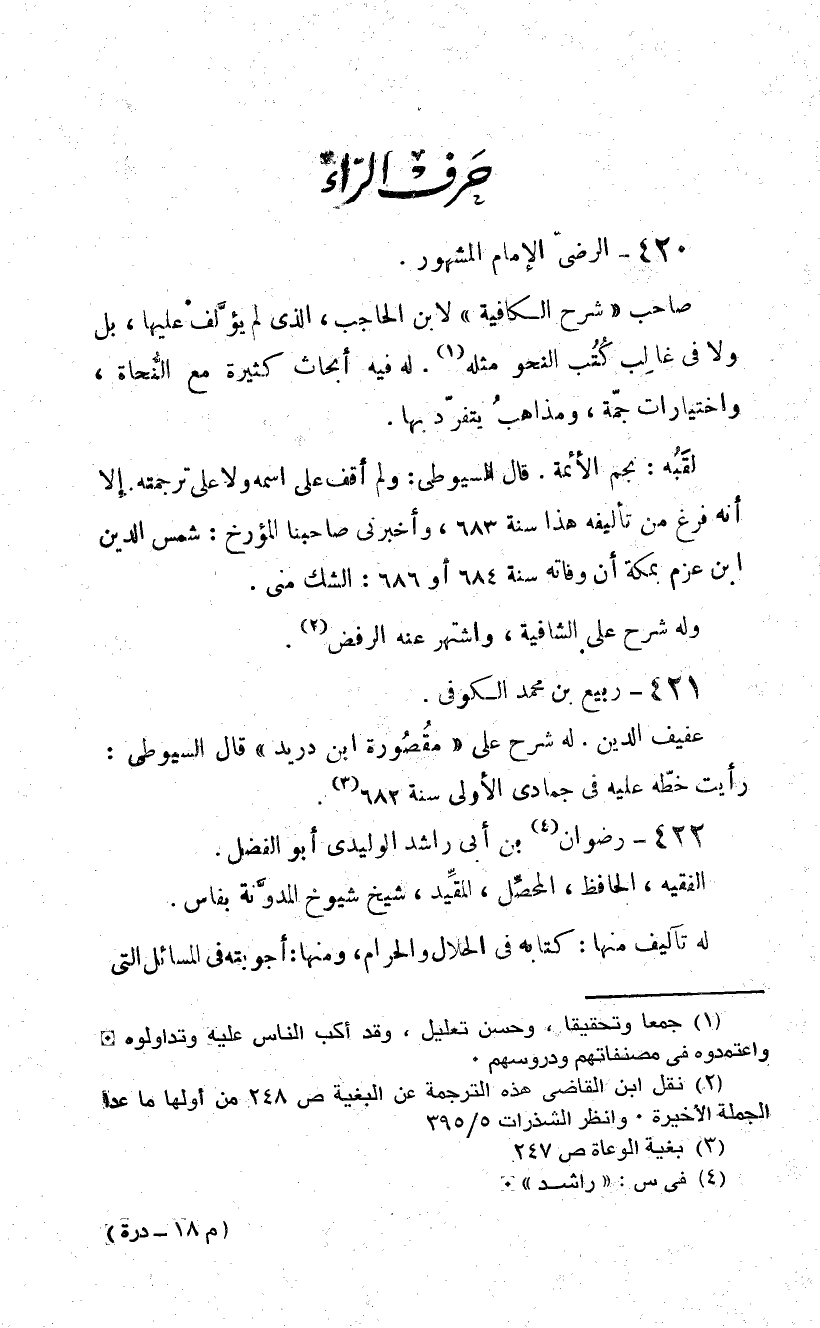 حَرفُ الرّاء
٤٢٠ - الرضىّ الإمام المشهور .
صاحب « شرح الكافية » لابن الحاجب ، الذى لم يؤلَّف عليها ، بل
ولا فى غالِب كُتُب النحو مثله(١) . له فيه أبحاث كثيرة مع النُّحاة ،
واختيارات جمّة ، ومذاهبُ يتفرّد بها .
لقَبُه : نجم الأئمة . قال السيوطى : ولم أقف على اسمه ولا على ترجمته . إلا
أنه فرغ من تأليفه هذا سنة ٦٨٣ ، وأخبرنى صاحبنا المؤرخ : شمس الدين
ابن عزم بمكة أن وفاته سنة ٦٨٤ أو ٦٨٦ : الشك منى .
وله شرح على الشافية ، واشتهر عنه الرفض(٢) .
٤٢١ - ربيع بن محمد الكوفى .
عفيف الدين . له شرح على « مقْصُورة ابن دريد » قال السيوطى :
رأيت خطّه عليه فى جمادى الأولى سنة ٦٨٢(٣) .
٤٢٢ - رضوان(٤) بن أبى راشد الوليدى أبو الفضل .
الفقيه ، الحافظ ، المحصِّل ، المقيِّد ، شيخ شيوخ المدوَّنة بفاس .
له تآليف منها : كتابه فى الحلال والحرام ، ومنها : أجوبته فى المسائل التى
(١) جمعا وتحقيقا ، وحسن تعليل ، وقد أكب الناس عليه وتداولوه
واعتمدوه فى مصنفاتهم ودروسهم ٠
(٢) نقل ابن القاضى هذه الترجمة عن البغية ص ٢٤٨ من أولها ما عدا
الجملة الأخيرة ٠ وانظر الشذرات ٣٩٥/٥
(٣) بغية الوعاة ص ٢٤٧
(٤) فى س : « راشد » ٠
(م ١٨ - درة)